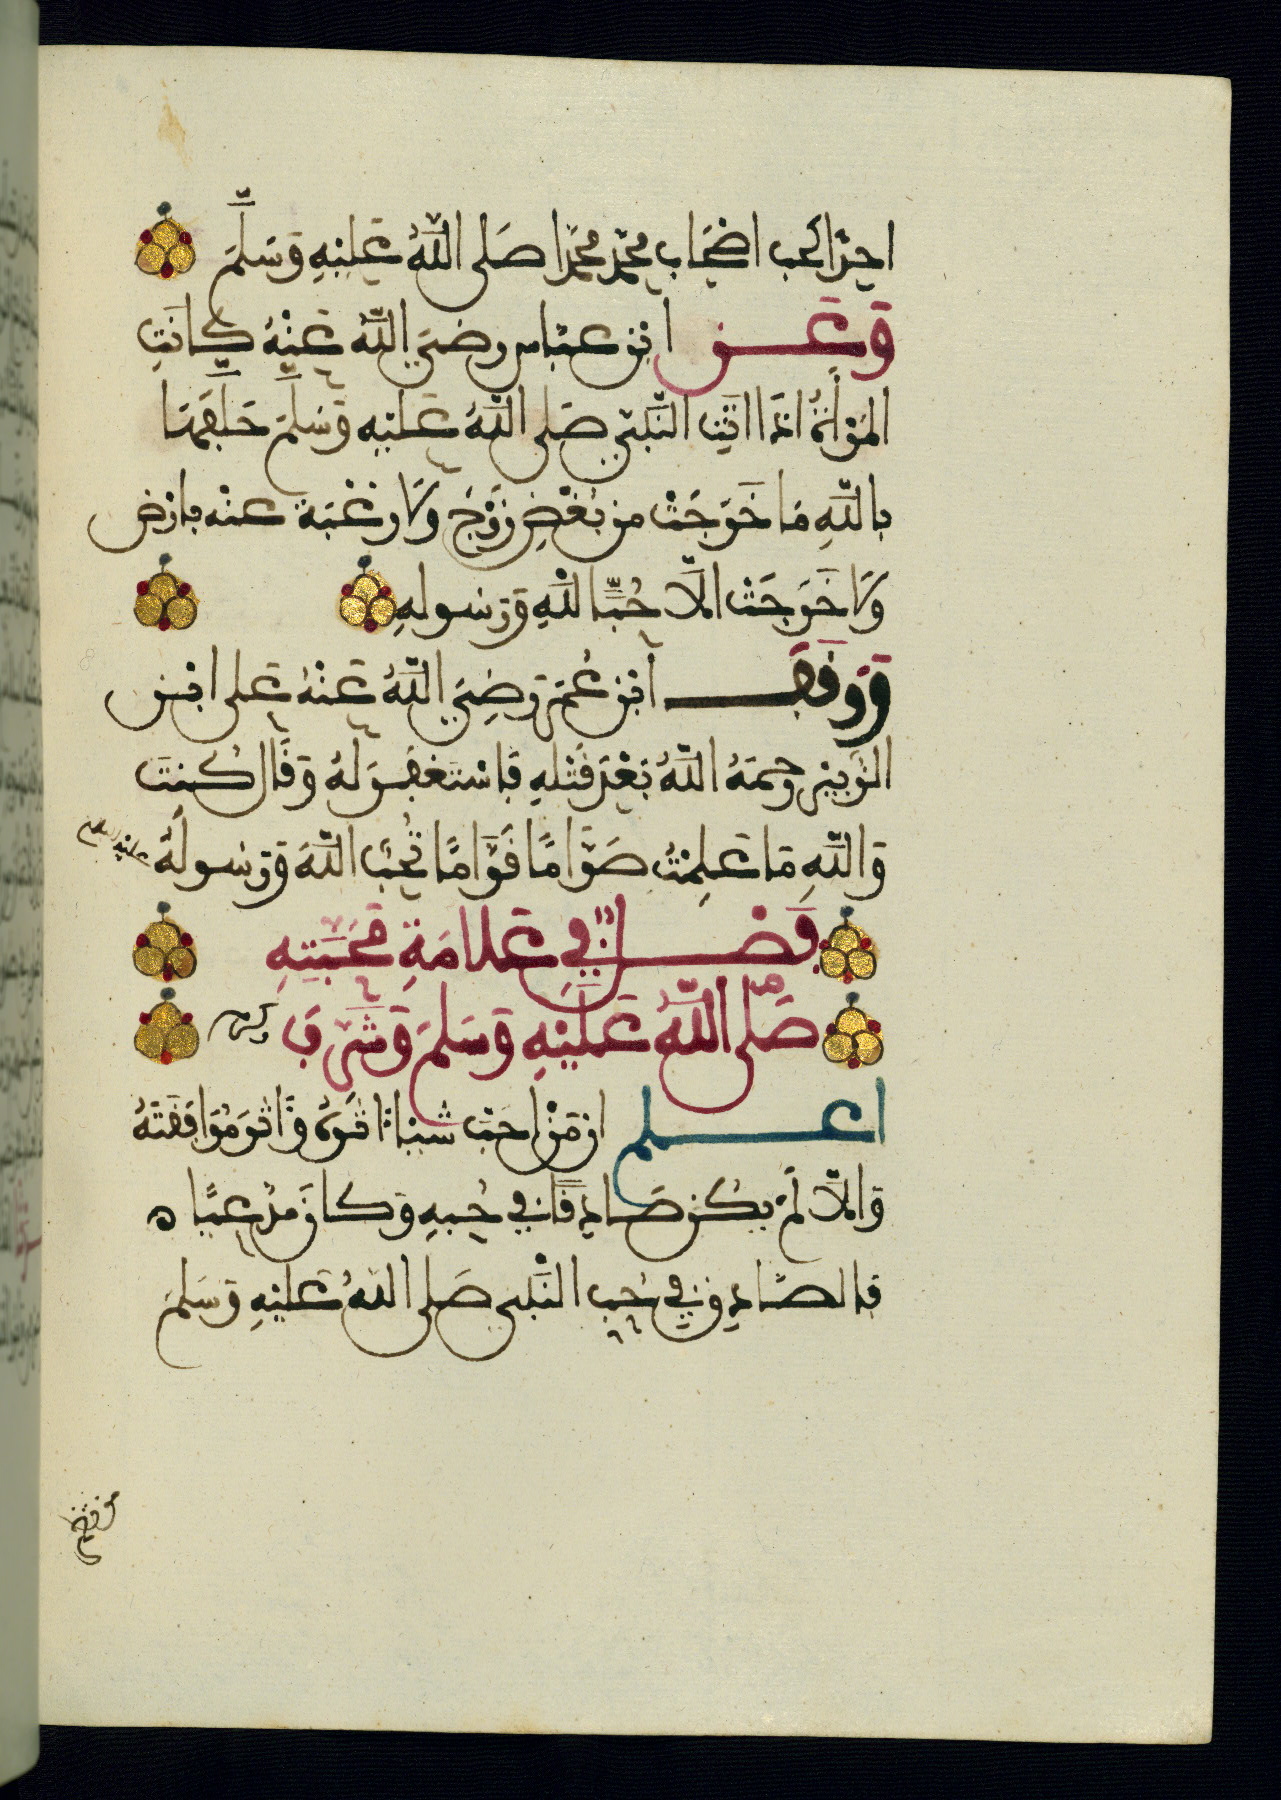 احدًا كحب اصحاب محمد محمدا صلى اللهُ عليهِ وسلم
وعن ابن عباس رضي الله عنهُ كانت
المرأة اذا اتت النبي صلى اللهُ عليهِ وسلم حلفها
بالله ما خرجت من بغض زوج ولا رغبة عنه بارض
ولا خرجت الا حبا لله ورسولهِ
ووقف ابن عمر رضي اللهُ عنهُ على ابن
الزبير رحمهُ اللهُ بعد قتلهِ فاستغفر لهُ وقال كنت
والله ما علمتُ صواما قواما تحب الله ورسولهُ عليه السلام
فصل في علامة محبتهِ
صلى اللهُ عليهِ وسلم وشرف وكرم
اعلم ان من احب شيئا اثره واثر موافقتهُ
والا لم يكن صادقا في حبهِ وكان مدعيا ه
فالصادق في حب النبي صلى اللهُ عليهِ وسلم